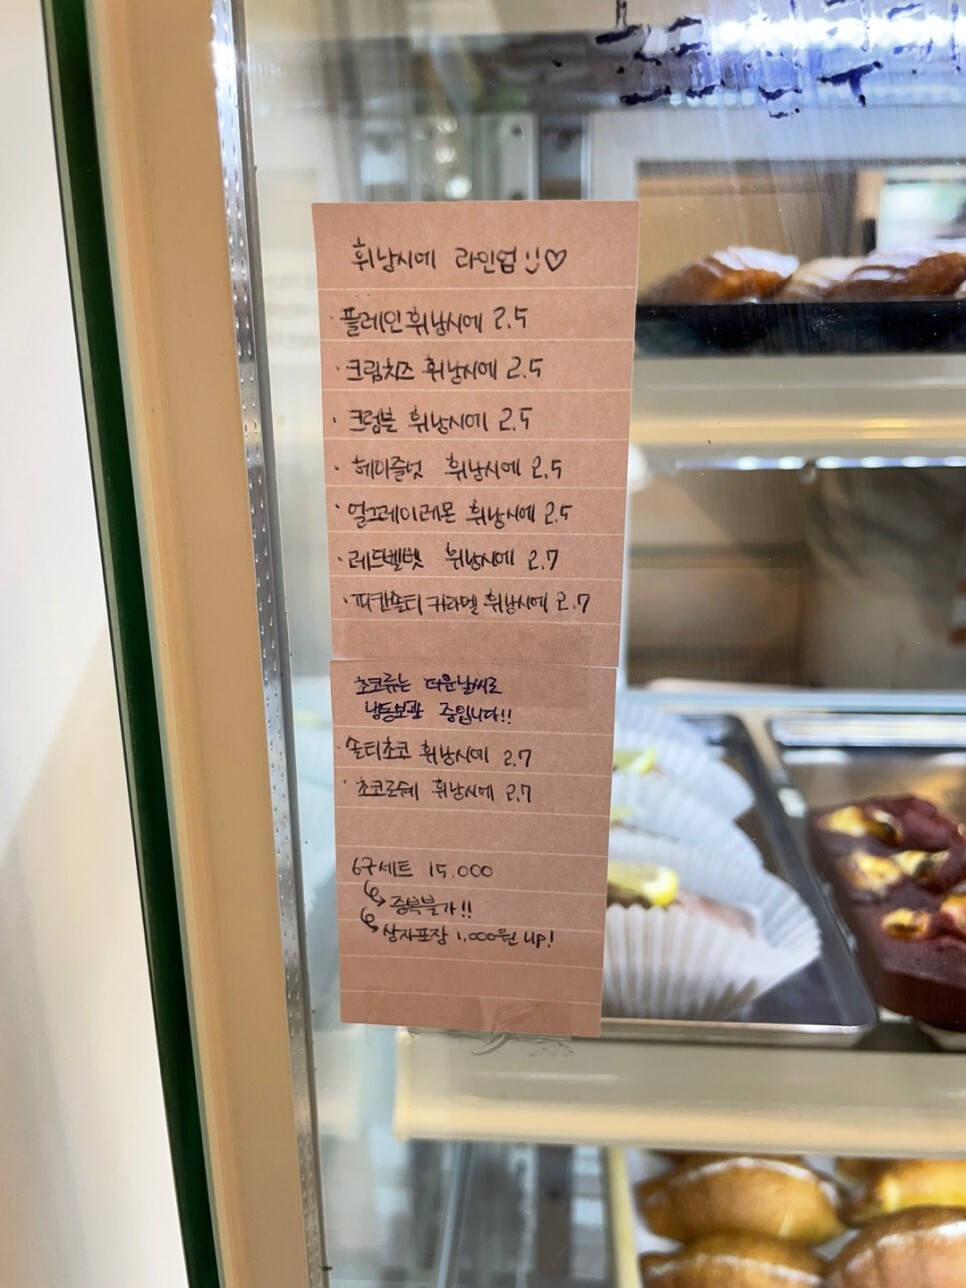 휘낭시에 라인업 :) ♡
· 플레인 휘낭시에 2.5
· 크림치즈 휘낭시에 2.5
· 크럼블 휘낭시에 2.5
· 헤이즐넛 휘낭시에 2.5
· 얼그레이레몬 휘낭시에 2.5
· 레드벨벳 휘낭시에 2.7
· 피칸솔티카라멜 휘낭시에 2.7
초코류는 더운날씨로
냉동보관 중입니다!!
· 솔티초코 휘낭시에 2.7
· 초코로쉐 휘낭시에 2.7
6구세트 15.000
중복불가!!
상자포장 1,000원 up!